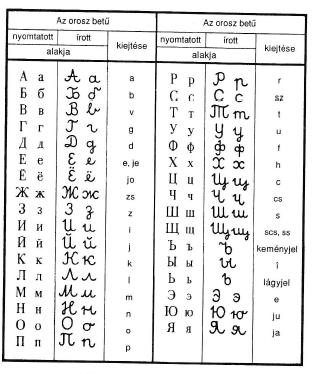 Az orosz betű
nyomtatott írott kiejtése
alakja
А а А а a
Б б Б б b
В в В в v
Г г Г г g
Д д Д д d
Е е Е е e, je
Ё ё Ё ё jo
Ж ж Ж ж zs
З з З з z
И и И и i
Й й Й й j
К к К к k
Л л Л л l
М м М м m
Н н Н н n
О о О о o
П п П п p
Az orosz betű
nyomtatott írott kiejtése
alakja
Р р Р р r
С с С с sz
Т т Т т t
У у У у u
Ф ф Ф ф f
Х х Х х h
Ц ц Ц ц c
Ч ч Ч ч cs
Ш ш Ш ш s
Щ щ Щ щ scs, ss
Ъ ъ ъ keményjel
Ы ы ы î
Ь ь ь lágyjel
Э э Э э e
Ю ю Ю ю ju
Я я Я я ja